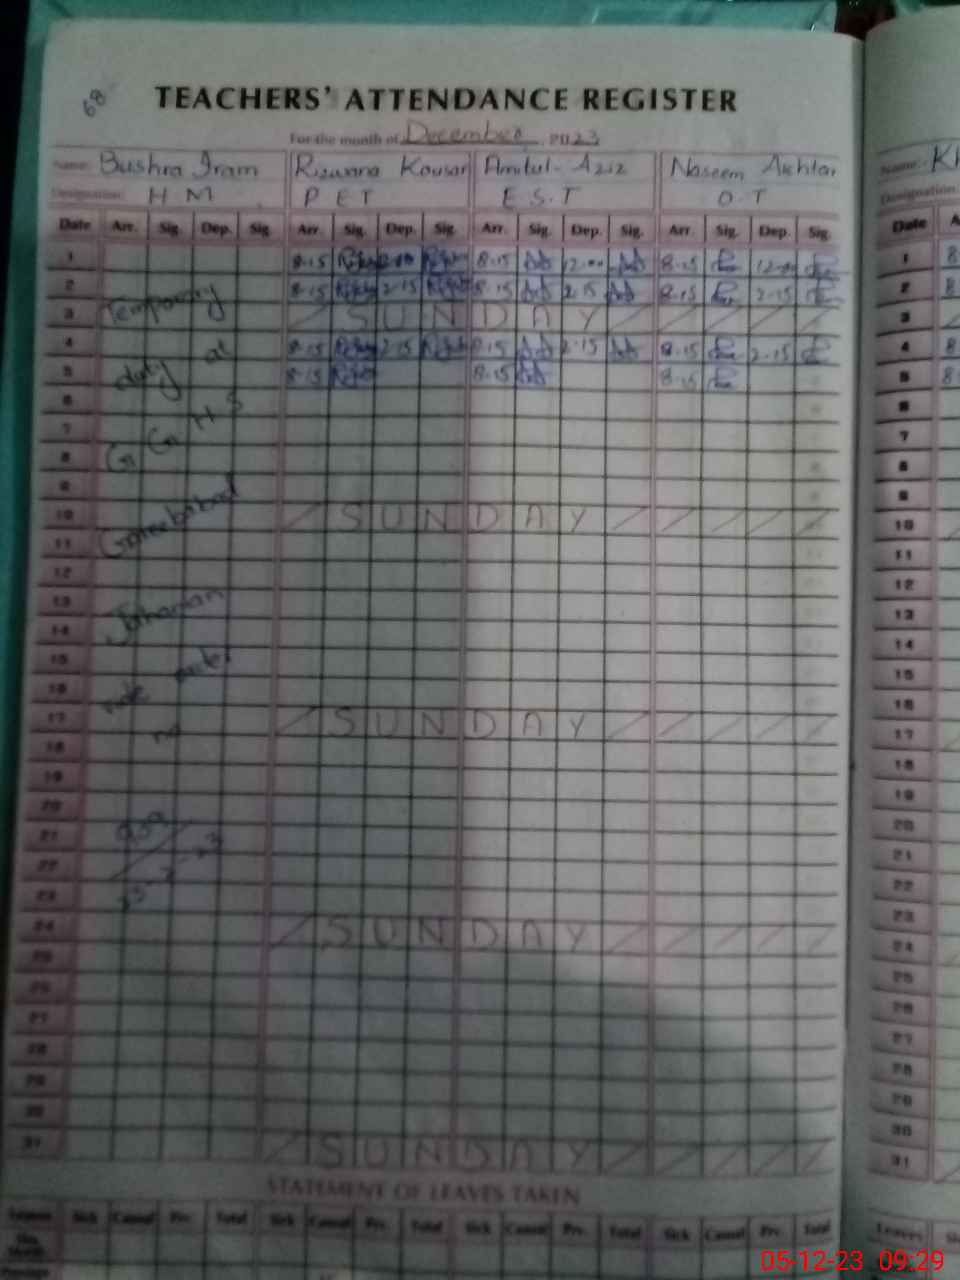 68
TEACHERS' ATTENDANCE REGISTER
For the month of December, 2023
Name: Bushra Iram Rizwana Kousar Amtul-Aziz Naseem Akhtar Name:- Kh
Designation: H M P E T E.S.T O.T Designation
Date Arr. Sig. Dep. Sig. Arr. Sig. Dep. Sig. Arr. Sig. Dep. Sig. Arr. Sig. Dep. Sig. Date A
1 8-15 8-15 12-00 8-15 12-00 1 8
2 8-15 2-15 8-15 2-15 8-15 2-15 2 8
3 SUNDAY 3
4 8-15 2-15 8-15 2-15 8-15 2-15 4 8
5 8-15 8-15 8-15 5 8
6 6
7 7
8 8
9 9
10 SUNDAY 10
11 11
12 12
13 13
14 14
15 15
16 16
17 SUNDAY 17
18 18
19 19
20 20
21 21
22 22
23 23
24 SUNDAY 24
25 25
26 26
27 27
28 28
29 29
30 30
31 SUNDAY 31
Temporary
duty at
G G H S
Gareebabad
Jahanian
vide order
no
STATEMENT OF LEAVES TAKEN
Leaves Sick Casual Prv. Total Sick Casual Prv. Total Sick Casual Prv. Total Sick Casual Prv. Total Leaves
This Month
Previous
05-12-23 09:29